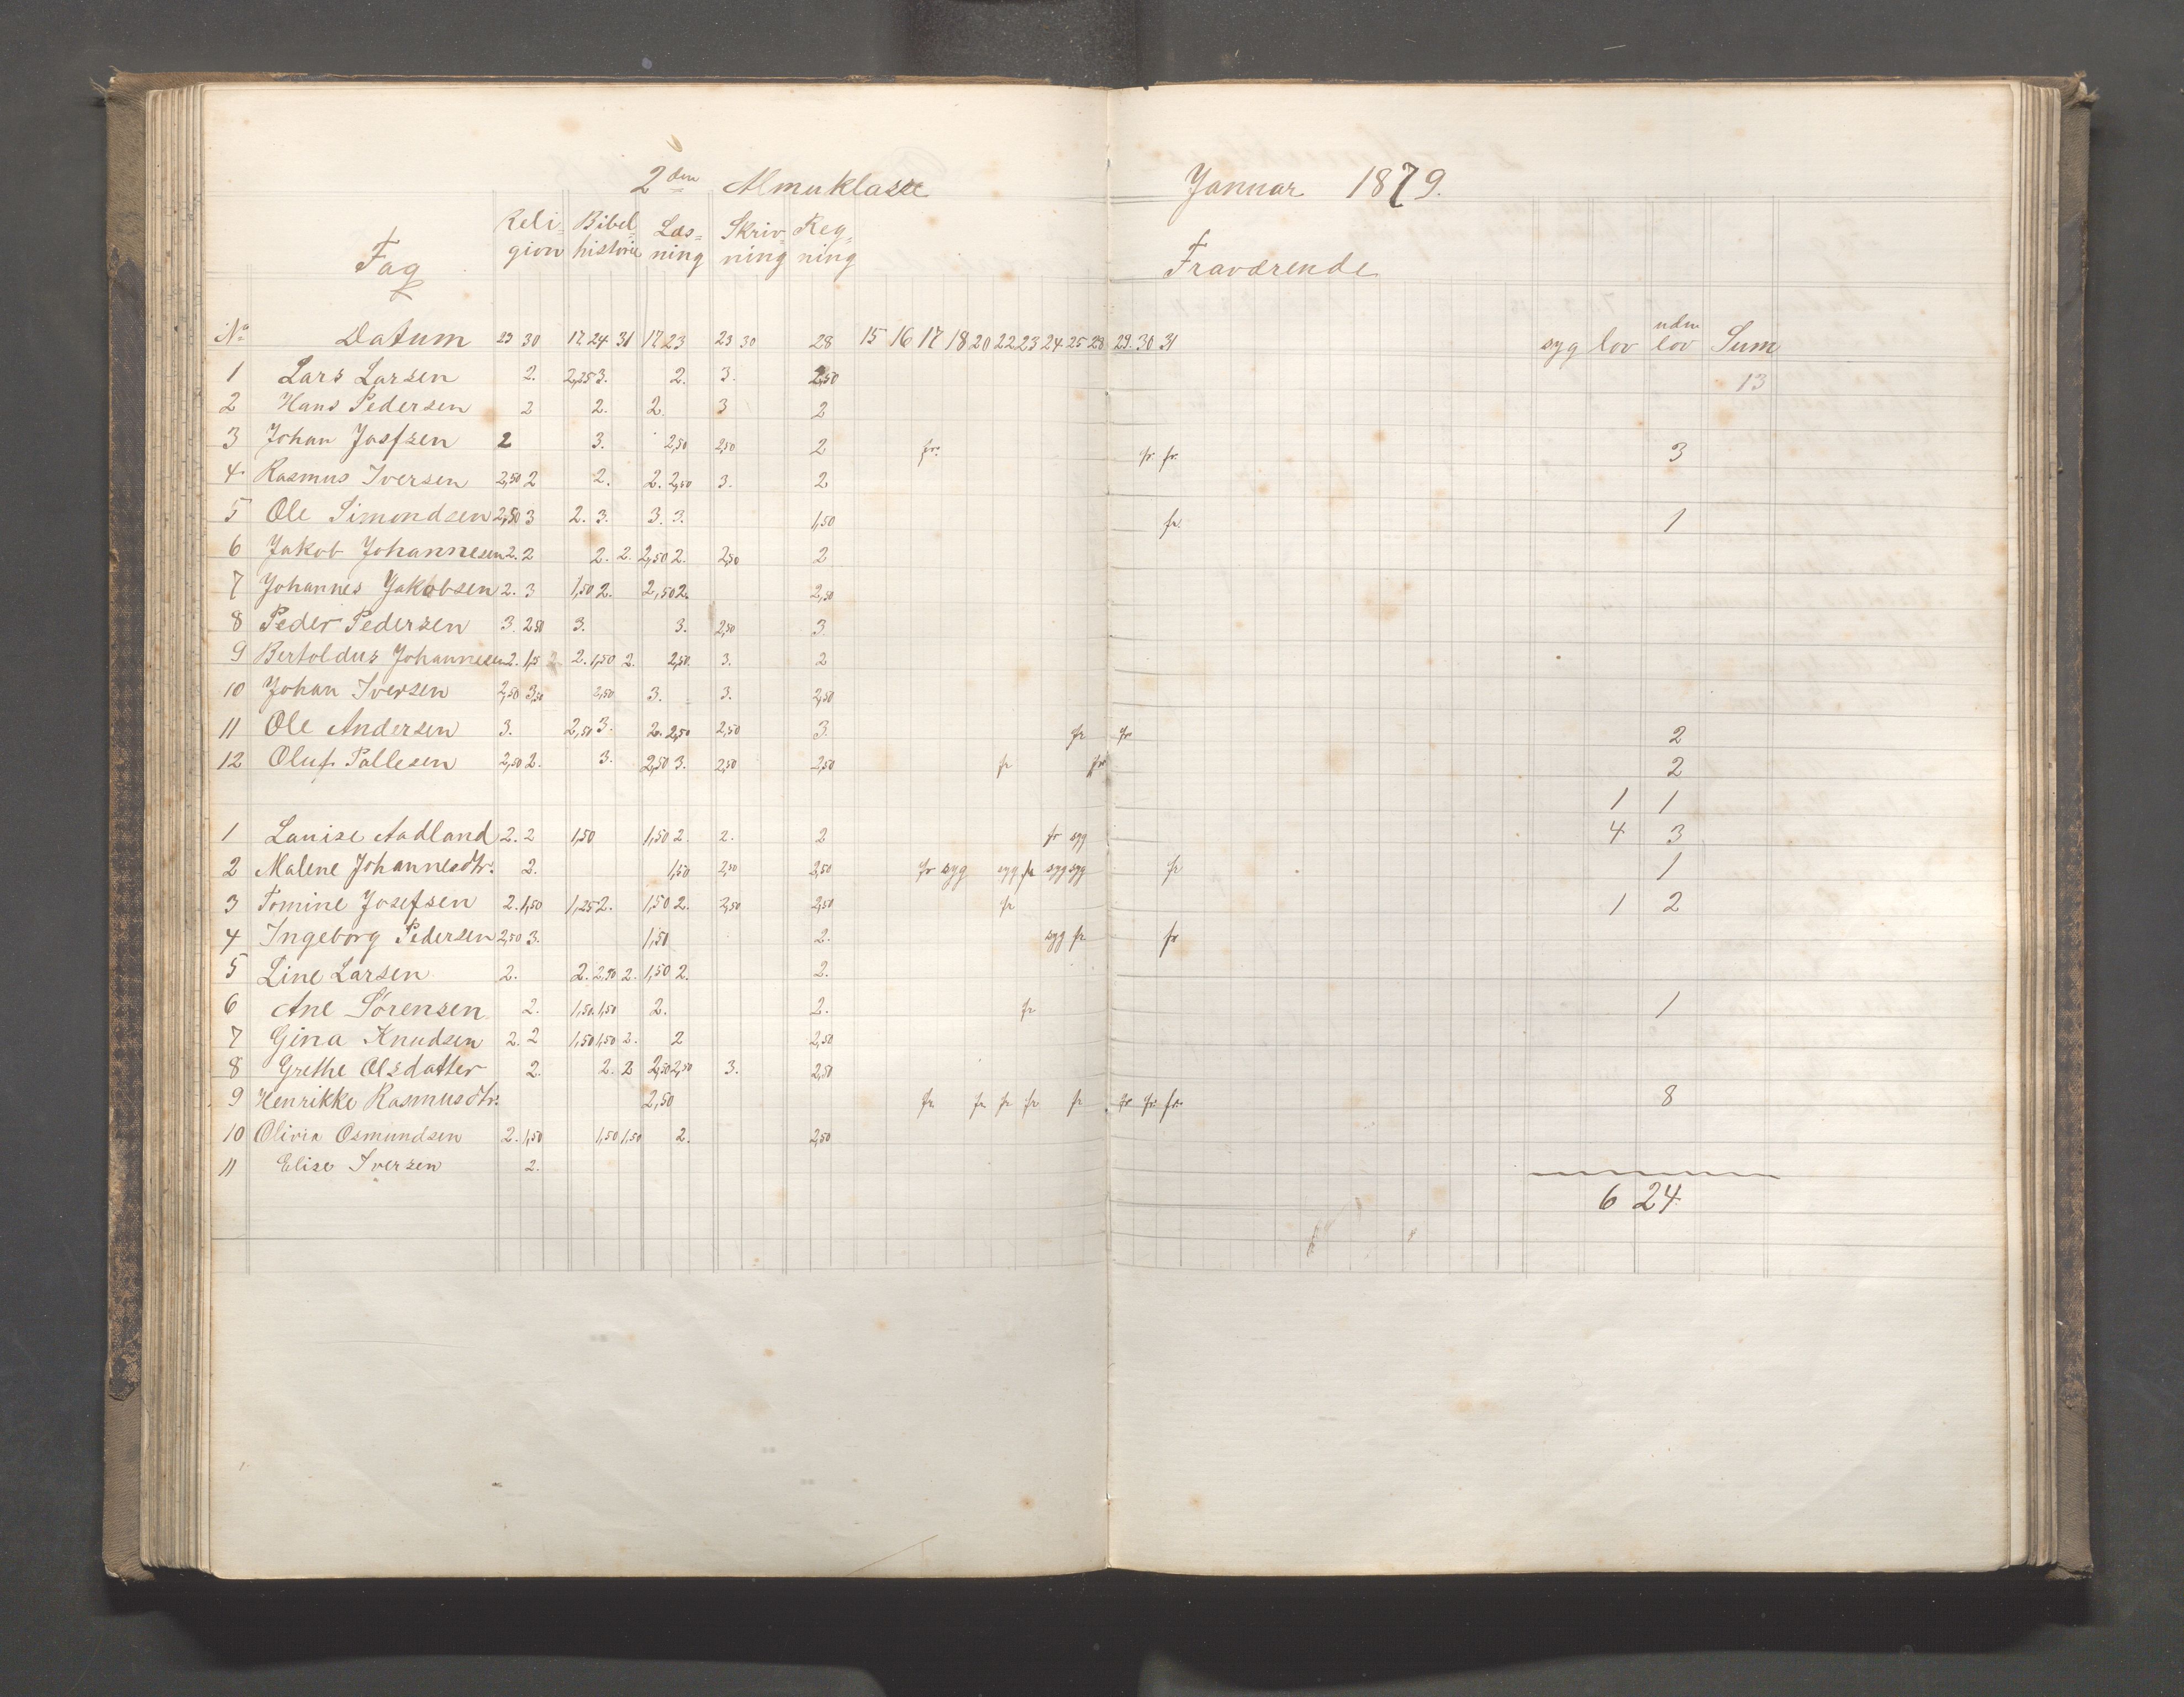 2den Almuklasse Januar 1879.
Fag Religion Bibelhistorie Læsning Skrivning Regning Fraværende
No Datum 23 30 17 24 31 17 23 23 30 28 15 16 17 18 20 22 23 24 25 28 29. 30 31 syg lov uden lov Sum
1 Lars Larsen 2. 2,25 3. 2. 3. 2,50 13
2 Hans Pedersen 2 2. 2. 3 2
3 Johan Josfsen 2 3. 2,50 2,50 2 fr. fr. fr. 3
4 Rasmus Iversen 2,50 2 2. 2. 2,50 3. 2
5 Ole Simondsen 2,50 3 2. 3. 3. 3. 1,50 fr. 1
6 Jakob Johannesen 2. 2 2. 2. 2,50 2. 2,50 2
7 Johannes Jakobsen 2. 3 1,50 2. 2,50 2. 2,50
8 Peder Pedersen 3. 2,50 3. 3. 2,50 3
9 Bertoldus Johannesen 2. 1,5 2 2. 1,50 2. 2,50 3. 2
10 Johan Iversen 2,50 3,50 2,50 3. 3. 2,50
11 Ole Andersen 3. 2,50 3. 2. 2,50 2,50 3. fr fr 2
12 Oluf Pallesen 2,50 2. 3. 2,50 3. 2,50 2,50 fr fr 2
1 1
1 Lauise Aadland 2. 2 1,50 1,50 2. 2. 2 fr syg 4 3
2 Malene Johannesdtr. 2. 1,50 2,50 2,50 fr syg syg fr syg syg fr 1
3 Tomine Josefsen 2. 1,50 1,25 2. 1,50 2. 2,50 2,50 fr 1 2
4 Ingeborg Pedersen 2,50 3. 1,50 2. syg fr fr
5 Line Larsen 2. 2. 2,50 2. 1,50 2. 2.
6 Ane Sørensen 2. 1,50 1,50 2. 2. fr 1
7 Gina Knudsen 2. 2 1,50 1,50 2. 2 2,50
8 Grethe Olsdatter 2. 2. 2 2,50 2,50 3. 2,50
9 Henrikke Rasmusdtr. 2,50 fr fr fr fr fr fr fr. fr. 8
10 Olivia Osmundsen 2. 1,50 1,50 1,50 2. 2,50
11 Elise Iversen 2.
6 24